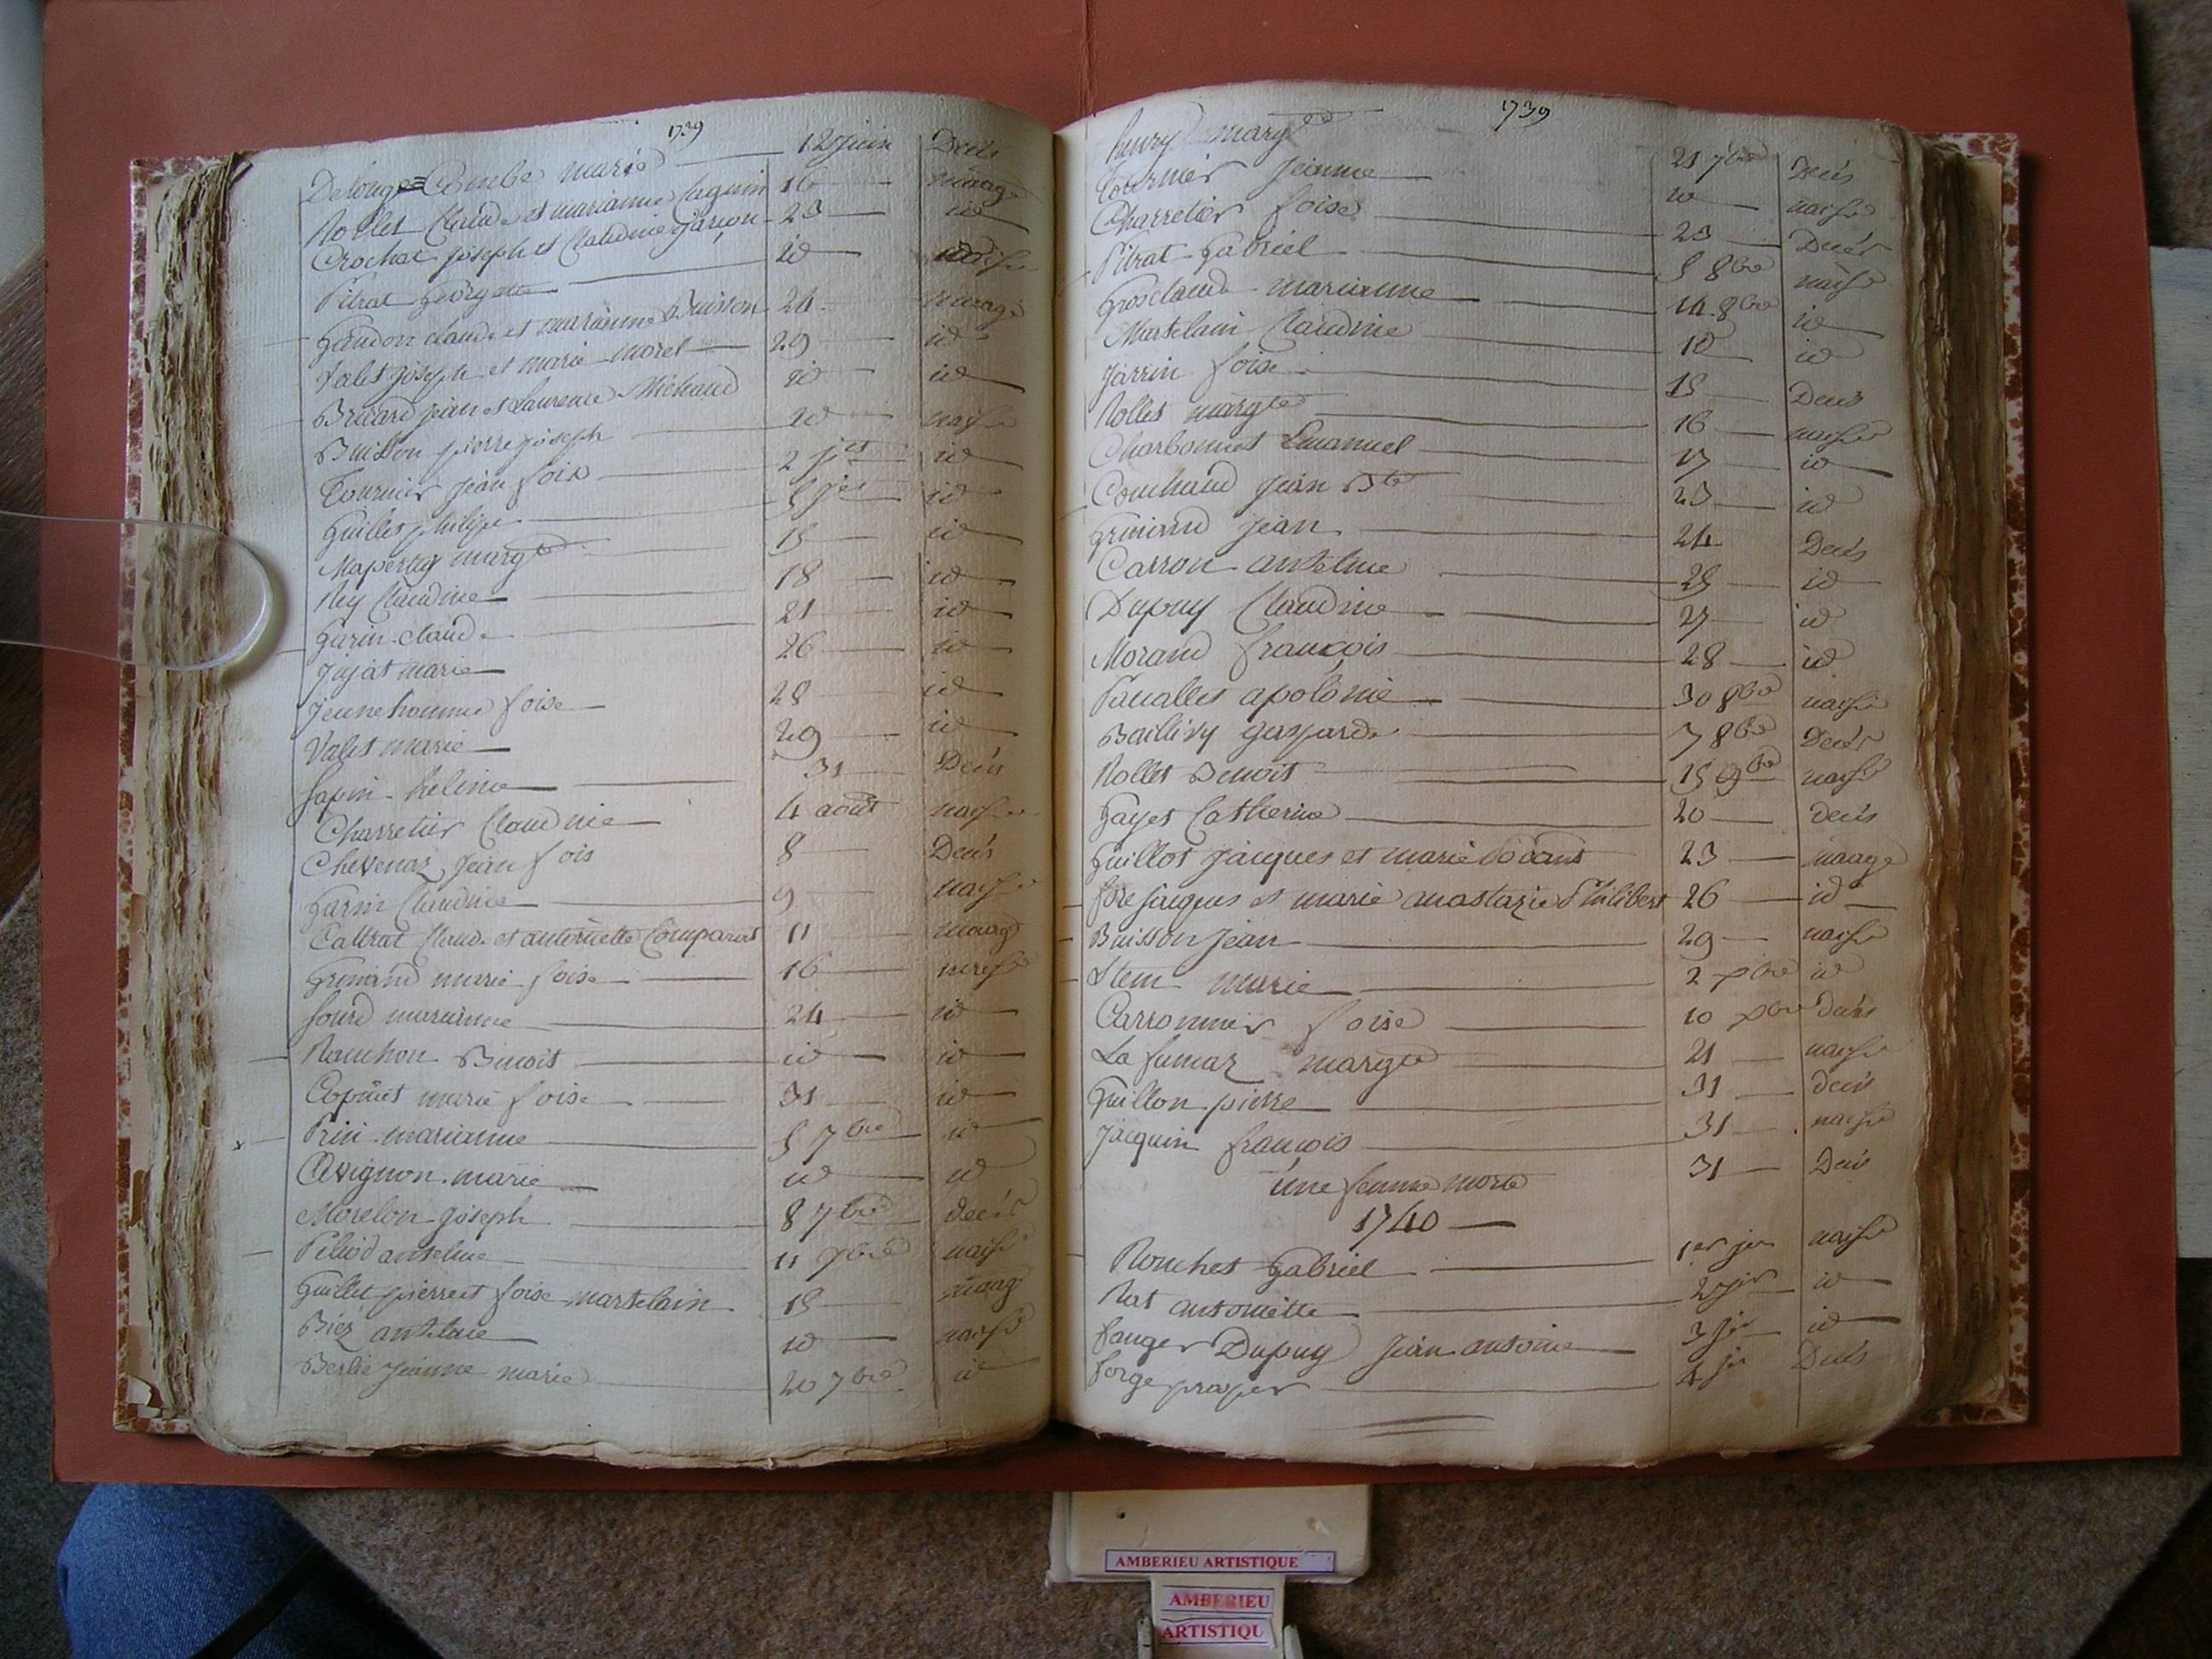 1739
Delonge Combe marie 12 juin Decès
Rollet Claude et marianne Seguin 16 mariag
Crochat joseph et Claudine jarçon 23 id
Pitrat Georgette id naisse
Gandon claude et marianne Buisson 24 mariag
Valet joseph et marie morel 29 id
Bricard jean et Laurence Michaud id id
Buisson pierre joseph id naisse
Tournier jean fois 2 jet id
Guillet philipe 5 jet id
Mapertuy margte 15 id
Rey Claudine 18 id
Garin claude 21 id
Jujat marie 26 id
Jeunehomme foise 28 id
Valet marie 29 id
Sapin helene 31 Decès
Charretier Claudine 4 août naisse
Chevenaz Jean fois 8 Decès
Garin Claudine 9 naisse
Cattrat Claude et antoinette Comparat 11 mariag
Grimand marie foise 16 naisse
Sourd marianne 24 id
Rouchon Benoit id id
Copinet marie foise 31 id
Prin marianne 5 7bre id
Avignon marie id id
Morelon joseph 8 7bre decès
Peliod anselme 11 7bre naisse
Guillet pierre et foise martelain 15 mariag
Biez antelme id naisse
Berlie jeanne marie 20 7bre id
1739
henry margte 21 7bre Decès
Tournier Jeanne id naisse
Charretier foise 23 Decès
Pitrat Gabriel 5 8bre naisse
Grosclaude marianne 14 8bre id
Martelain Claudine id id
Jarrin foise 15 Decès
Rollet margte 16 naisse
Charbonnet Emanuel 17 id
Couchaud jean Bte 23 id
Grimand jean 24 Decès
Carron antelme 25 id
Dupuy Claudine 27 id
Morand françois 28 id
apolonie 30 8bre naisse
gasparde 7 8bre Decès
Rollet Benoit 15 9bre naisse
Gayet Catherine 20 decès
Guillot jacques et marie 23 mariage
jacques et marie anastazie Philibert 26 id
Buisson jean 29 naisse
Stem marie 2 xbre id
Carronnier foise 10 xbre decès
La fumaz margte 21 naisse
Guillon pierre 31 decès
Jacquin françois 31 naisse
une femme morte 31 Decès
1740
Rouchet Gabriel 1er jer naisse
Rat antoinette 2 jer id
fauger Dupuy Jean antoine 3 jer id
forge prosper 4 jer Decès
AMBERIEU ARTISTIQUE
AMBERIEU
ARTISTIQU